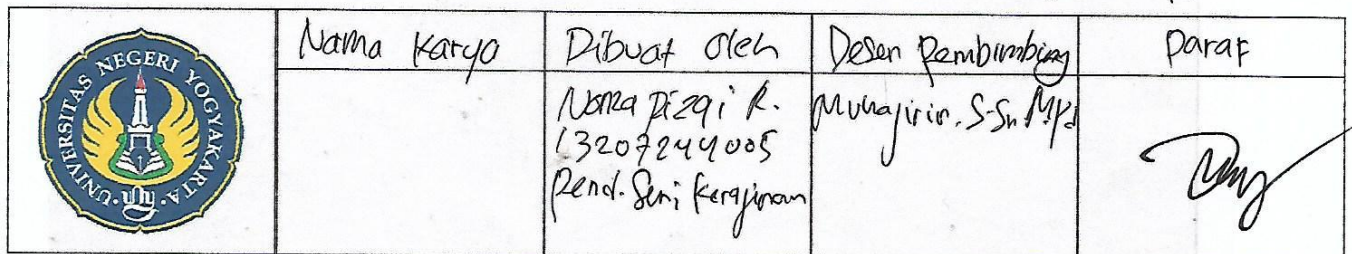 UNIVERSITAS NEGERI YOGYAKARTA
Nama Karya
Dibuat Oleh
Dosen Pembimbing
Paraf
Rizqi R.
13207244005
Pend. Seni Kerajinan
Muhajirin. S.Sn. M.Pd